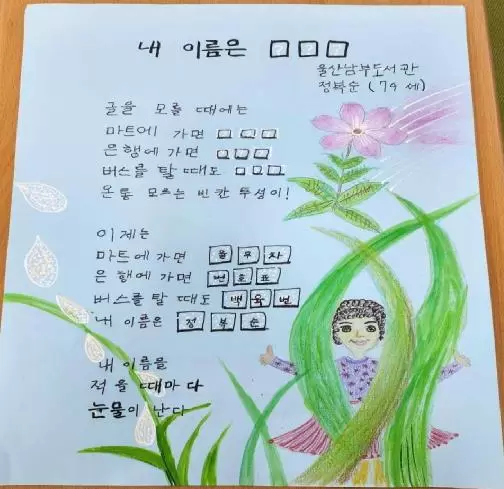 내 이름은 □□□
울산남부도서관
정복순 (79세)
글을 모를 때에는
마트에 가면 □□□
은행에 가면 □□□
버스를 탈 때도 □□□
온통 모르는 빈칸 투성이!
이제는
마트에 가면 율무차
은행에 가면 번호표
버스를 탈 때도 백육번
내 이름은 정복순
내 이름을
적을 때마다
눈물이 난다